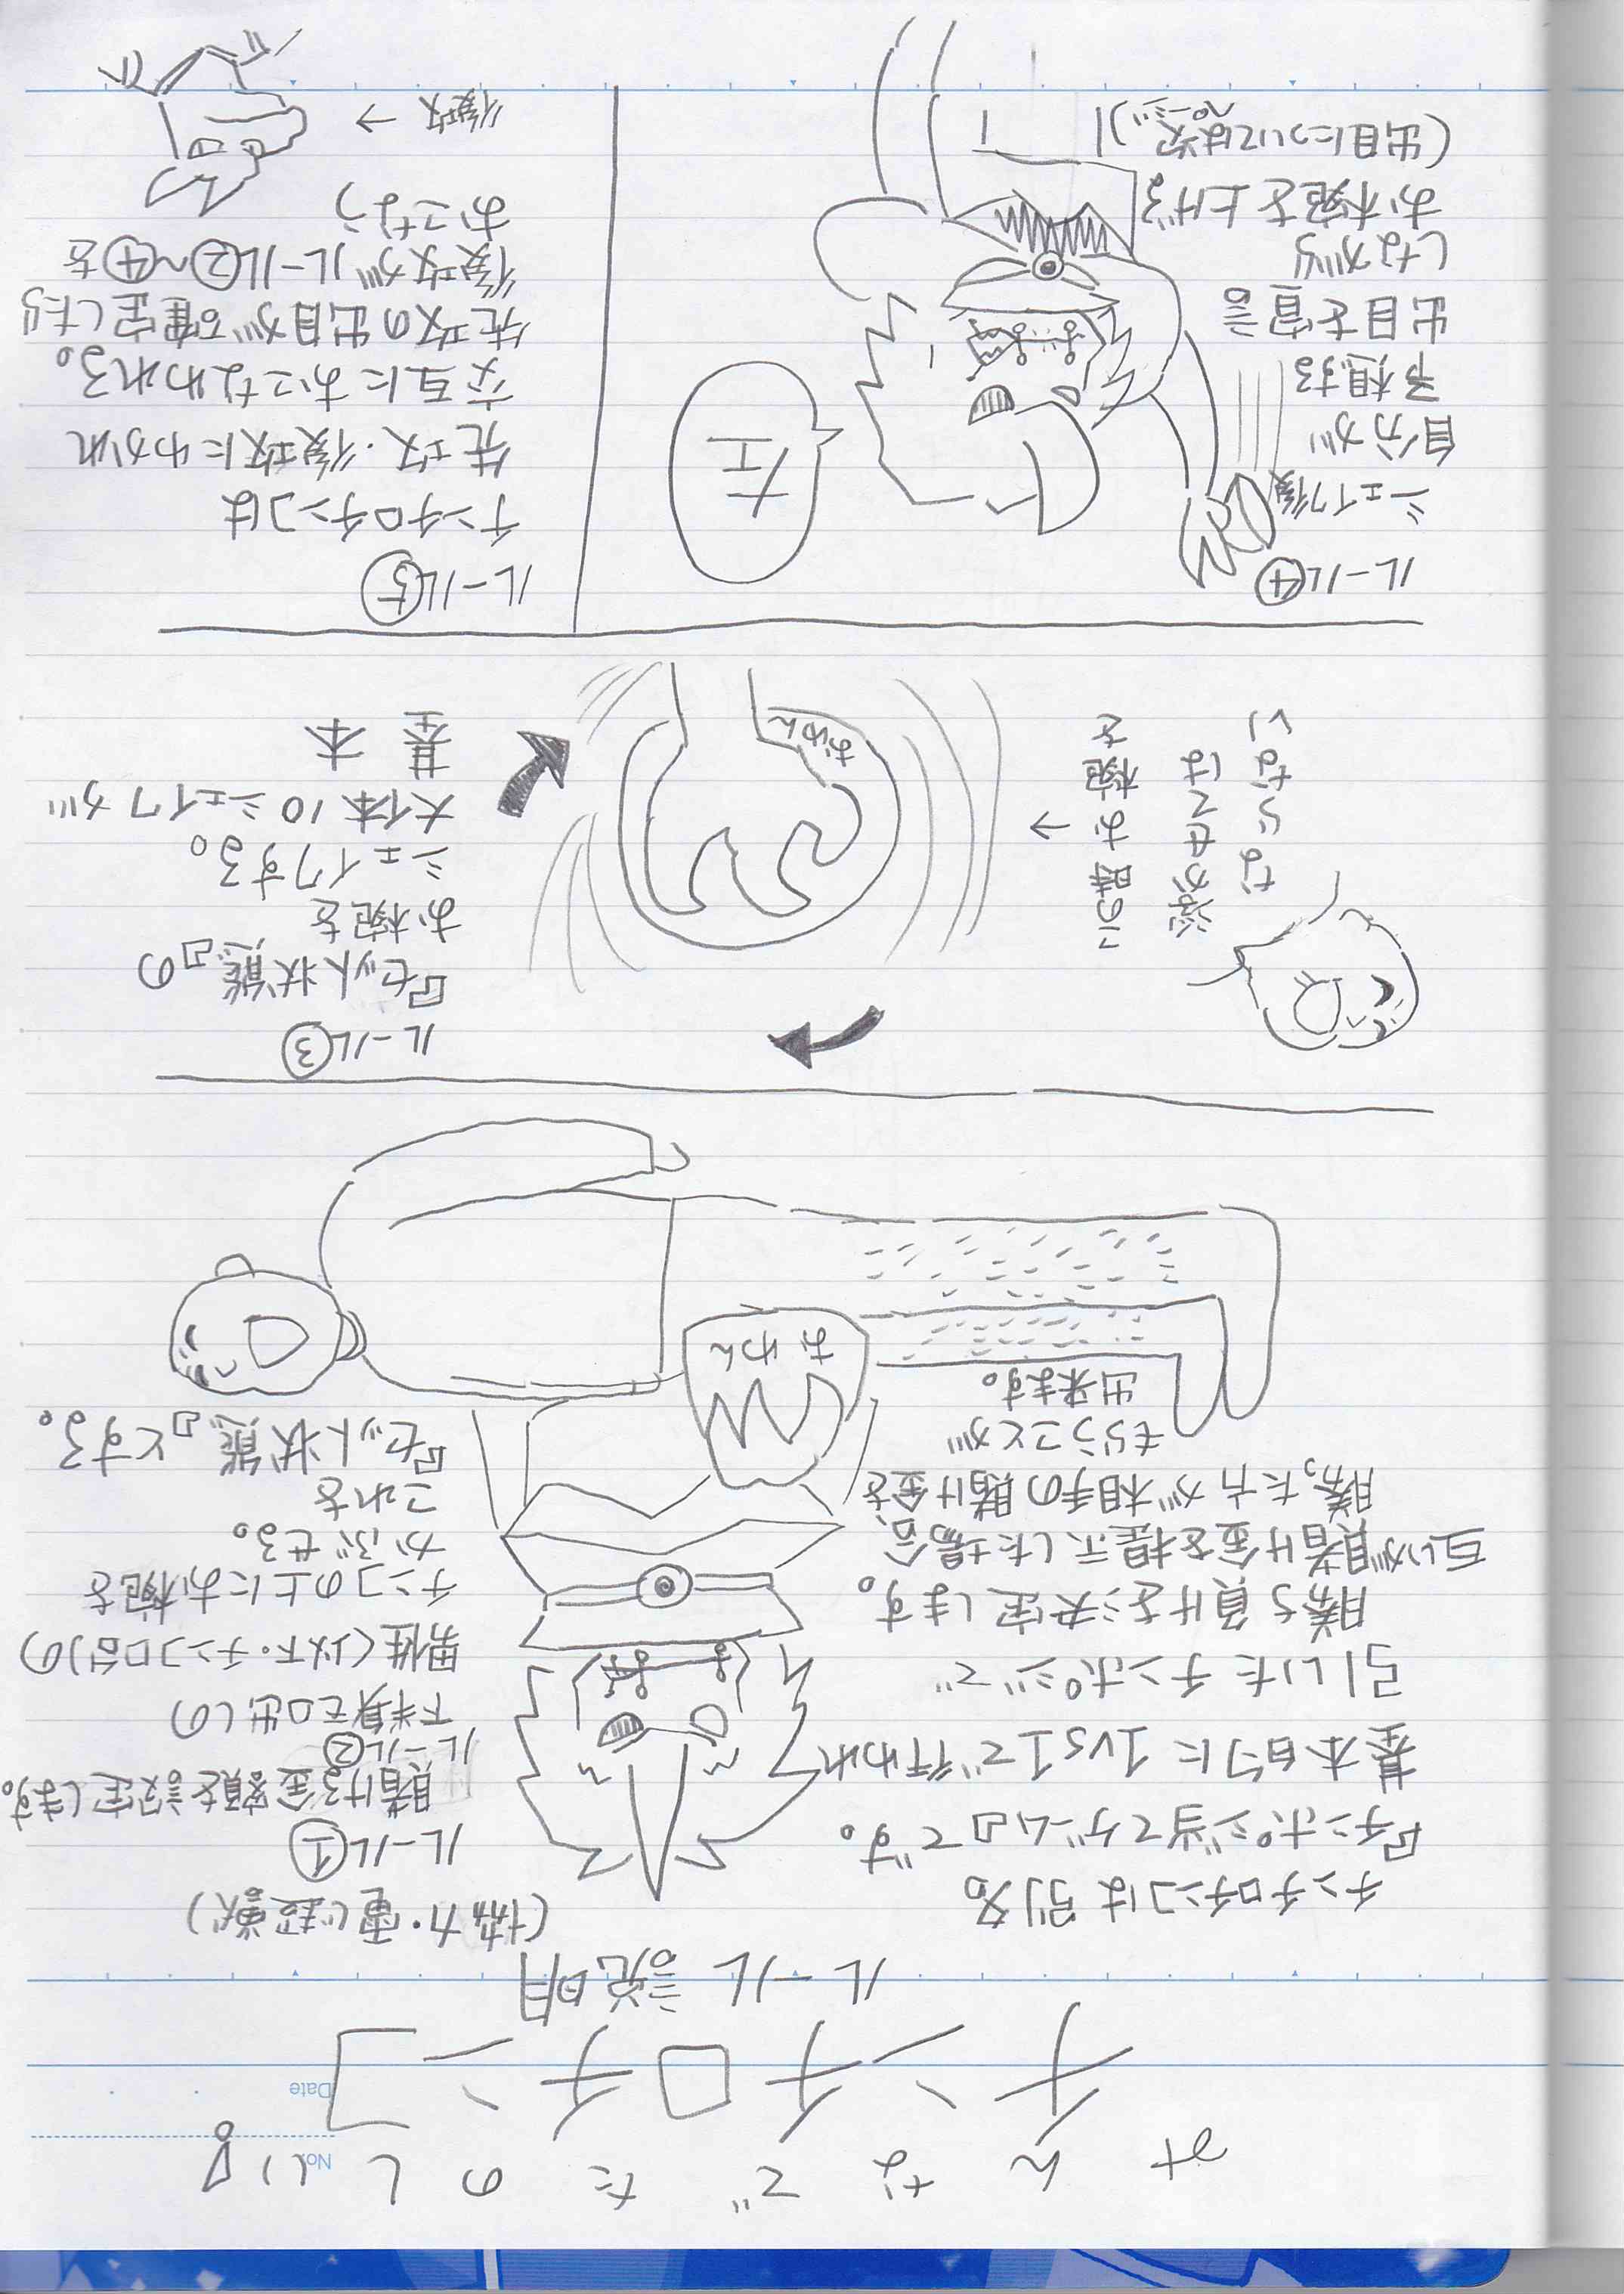 みんなでたのしい!
チンチロチンコ
No.
Date
ルール説明
(協力・電じ超獣)
チンチロチンコは別名
『チンポジ当てゲーム』です。
基本的に1vs1で行われ
引いたチンポジで
勝ち負けを決定します。
互いが賭け金を提示した場合、
勝った方が相手の賭け金を
もらうことが
出来ます。
ルール①
賭ける金額を設定します。
ルール②
下半身モロ出しの
男性(以下・チンコロ台)の
チンコの上にお椀を
かぶせる。
これを
『セット状態』とする。
おわん
ルール③
『セット状態』の
お椀を
シェイクする。
大体10シェイクが
基本
おわん
この時お椀を
浮かせては
ならない
ルール④
シェイク後
自分が
予想する
出目を宣言
しながら
お椀を上げる
(出目については次ページ)
左
ルール⑤
チンチロチンコは
先攻・後攻にわかれ
交互におこなわれる。
先攻の出目が確定したら
後攻がルール②〜④を
おこなう
後攻→